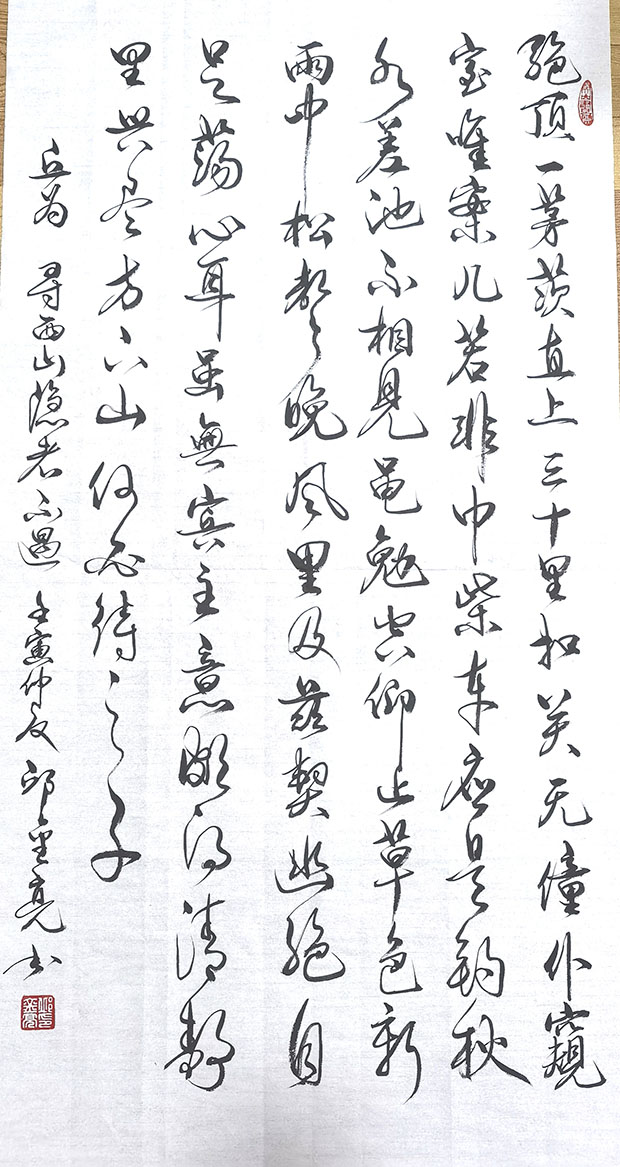 絕頂一茅茨直上三十里扣关无僮仆窺
室唯案几若非巾柴车应是钓秋
水差池不相見黾勉空仰止草色新
雨中松声晚风里及兹契幽絕自
足蕩心耳虽無宾主意颇得清静
里兴尽方下山何必待之子
丘为 寻西山隐者不遇 壬寅仲夏 邱金亮书